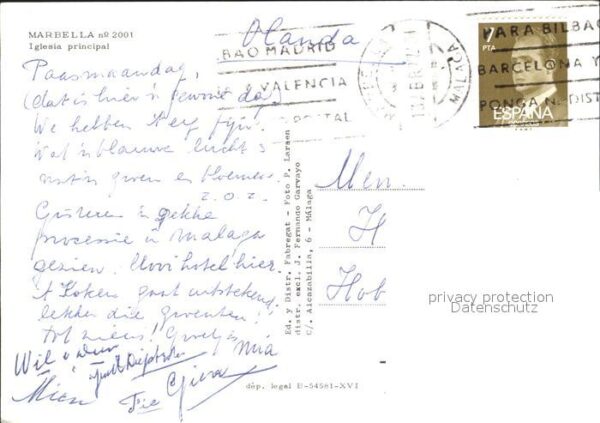 MARBELLA nº 2001
Iglesia principal
Olanda
Paasmaandag,
(dat is hier 'n gewone dag)
We hebben 't erg fijn.
Wat 'n blauwe lucht &
rust in groen en bloemen
z.o.z.
Gisteren 'n gekke
processie in Malaga
gezien. Mooi hotel hier.
't Koken gaat uitstekend
lekker die groenten!
Tot ziens! Groetjes
Mia
Wil
Mien
Fie
Men.
H
Hob
BAO MADRID
VALENCIA
POSTAL
MALAGA
PARA BILBAO
BARCELONA Y
PONGA Nº DIST
2
PTA
ESPAÑA
Ed. y Distr. Fabregat - Foto P. Larsen
distr. excl. J. Fernando Garvayo
C/. Alcazabilla, 6 - Málaga
dép. legal B-54581-XVI
privacy protection
Datenschutz